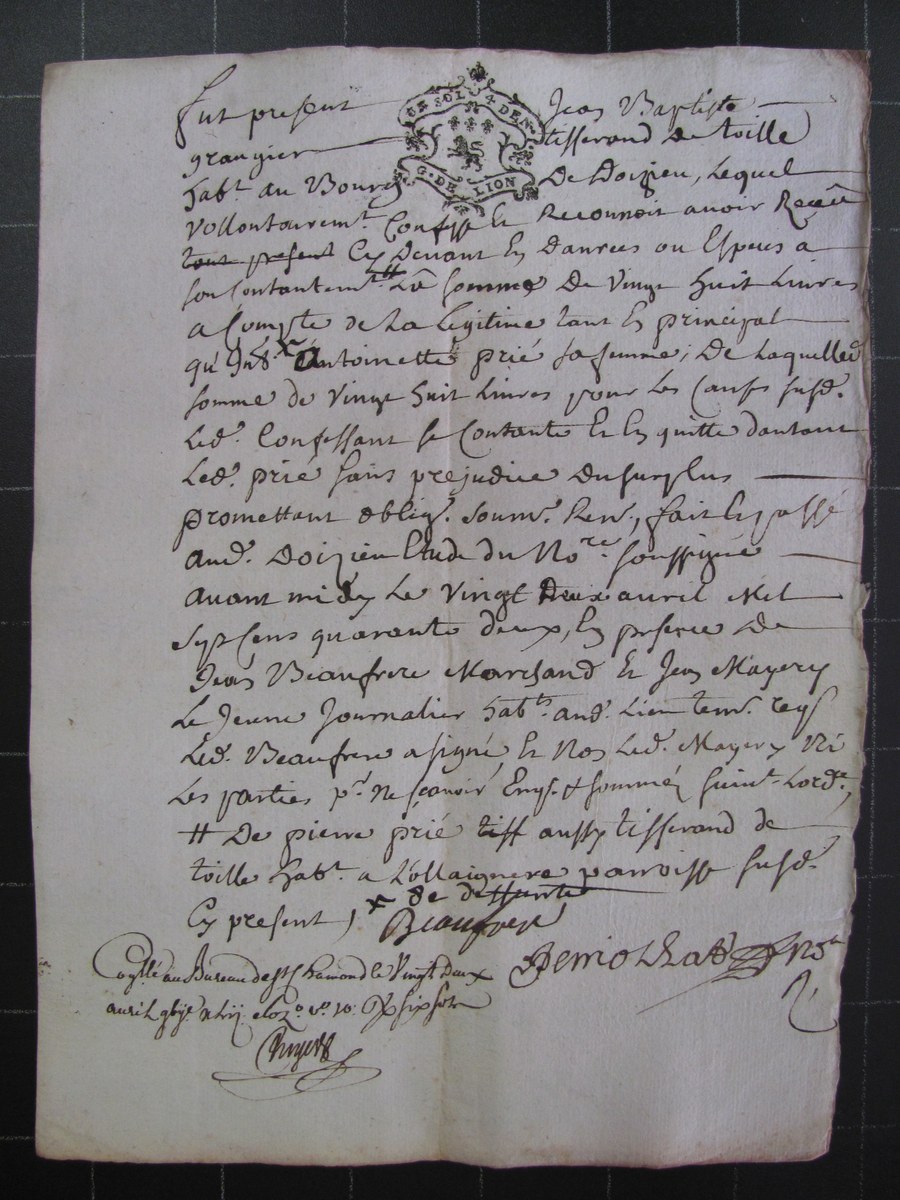 fut present Jean Baptiste
UN SOL 4 DEN.
G. DE LION
grangier tisserand de toille
habt. au Bourg de Doizieu, lequel
vollontairemt. confesse et reconnoit avoir receu
tout present cy devant en danrees ou especes a
son contantemt. # La somme de vingt huit livres
a compte de la legitime tant en principal
qu'int. x Antoinette prié sa femme; de laquelle
somme de vingt huit livres pour les causes susd.
led. confessant se contante et en quitte dautant
led. prié sans prejudice du surplus
promettant oblig. soum. ren., fait et passé
aud. Doizieu Etude du Nore. soussigné
avant midy le vingt deux avril mil
sept cens quarante deux, en presence de
Jean Beaufrere marchand et Jean Mayery
le jeune journalier habts. aud. lieu tem.
led. Beaufrere a signé, et non led. Mayery ni
les parties pr. ne sçavoir enq. & sommés suivt. lorde.,
# De pierre prié tiss aussy tisserand de
toille habt. a Lollaignere parroisse susd.
cy present, x de deffunte
Beaufrere
Coñllé au Bureau de st. chamond le vingt deux
avril six sols